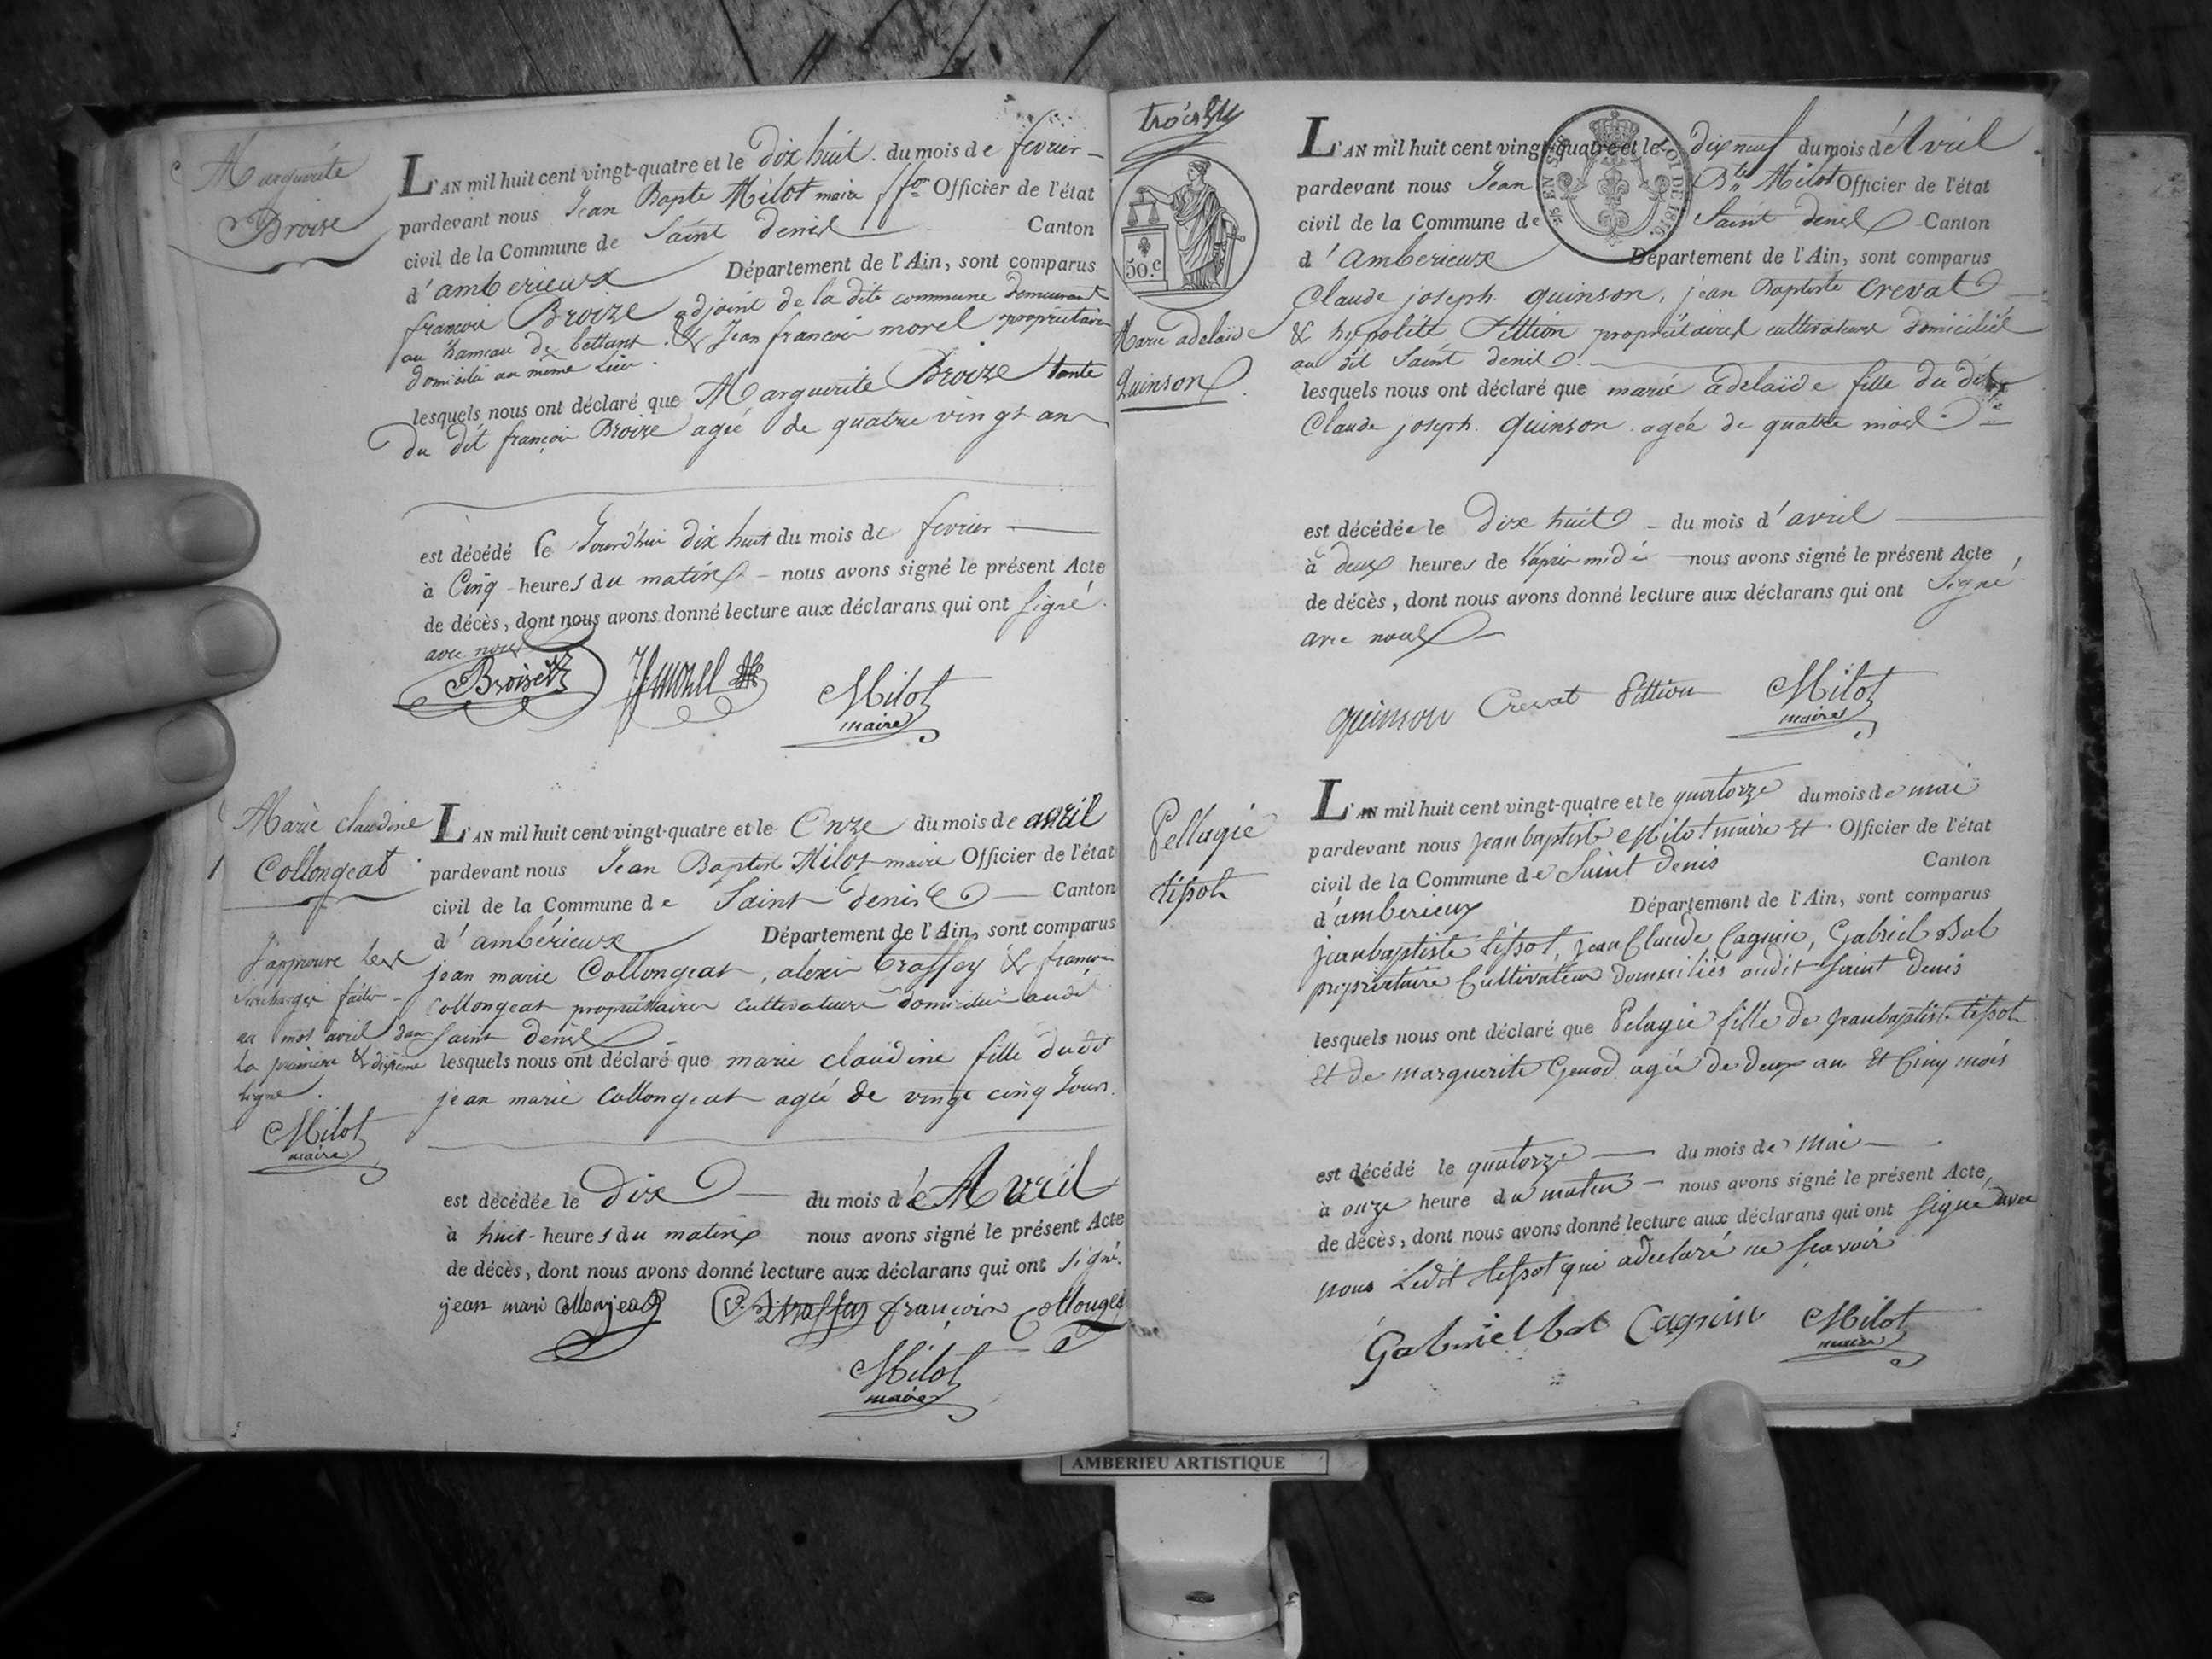 Marguerite
Broize
L'AN mil huit cent vingt-quatre et le dix huit du mois de fevrier
pardevant nous Jean Bapte Milot maire Officier de l'état
civil de la Commune de Saint denis Canton
d'amberieux Département de l'Ain, sont comparus
francois Broize adjoint de la dite commune demeurant
au hameau de bettant & Jean francois morel propriétaire
domicilié au même lieu.
lesquels nous ont déclaré que Marguerite Broize tante
du dit françois Broize agée de quatre vingt an
est décédé le Jourd'hui dix huit du mois de fevrier
à Cinq heures du matin nous avons signé le présent Acte
de décès, dont nous avons donné lecture aux déclarans qui ont signé
avec nous
Broize JFmorel Milot
maire
Marie claudine
Collongeat
L'AN mil huit cent vingt-quatre et le Onze du mois de avril
pardevant nous Jean Baptiste Milot maire Officier de l'état
civil de la Commune de Saint denis Canton
d'ambérieux Département de l'Ain, sont comparus
jean marie Collongeat, alexis & francois
Collongeat propriétaires cultivateurs domiciliés audit
saint denis
lesquels nous ont déclaré que marie claudine fille dudit
jean marie Collongeat agée de vingt cinq Jours.
J'approuve les
surcharges faites
au mot avril dans
la premiere & dixieme
ligne.
Milot
maire
est décédée le dix du mois de Avril
à huit heures du matin nous avons signé le présent Acte
de décès, dont nous avons donné lecture aux déclarans qui ont signé.
jean mari Collonjeat françois Collonges
Milot
maire
50.c
Marie adelaide
Quinson
L'AN mil huit cent vingt-quatre et le dix neuf du mois d'Avril
pardevant nous Jean Bte Milot Officier de l'état
civil de la Commune de Saint denis Canton
d'Amberieux Département de l'Ain, sont comparus
Claude joseph quinson, jean Baptiste Crevat
& hypolite Pittion propriétaires cultivateurs domiciliés
au dit Saint denis
lesquels nous ont déclaré que marie adelaïde fille du dit
Claude joseph quinson agée de quatre mois
est décédée le dix huit du mois d'avril
à deux heures de l'apres midi nous avons signé le présent Acte
de décès, dont nous avons donné lecture aux déclarans qui ont signé
avec nous
quinson Crevat Pittion Milot
maire
Pellagie
tissot
L'AN mil huit cent vingt-quatre et le quatorze du mois de mai
pardevant nous jean baptiste Milot maire et Officier de l'état
civil de la Commune de Saint Denis Canton
d'amberieux Département de l'Ain, sont comparus
jean baptiste tissot, jean Claude Cagnin, Gabriel Bal
propriétaire Cultivateur domiciliés audit saint denis
lesquels nous ont déclaré que Pelagie fille de jean baptiste tissot
et de marguerite Genod agée de deux an et Cinq mois
est décédé le quatorze du mois de mai
à onze heure du matin nous avons signé le présent Acte
de décès, dont nous avons donné lecture aux déclarans qui ont signé avec
nous Ledit tissot qui a déclaré ne scavoir
Gabriel bal Cagnin Milot
maire
AMBERIEU ARTISTIQUE